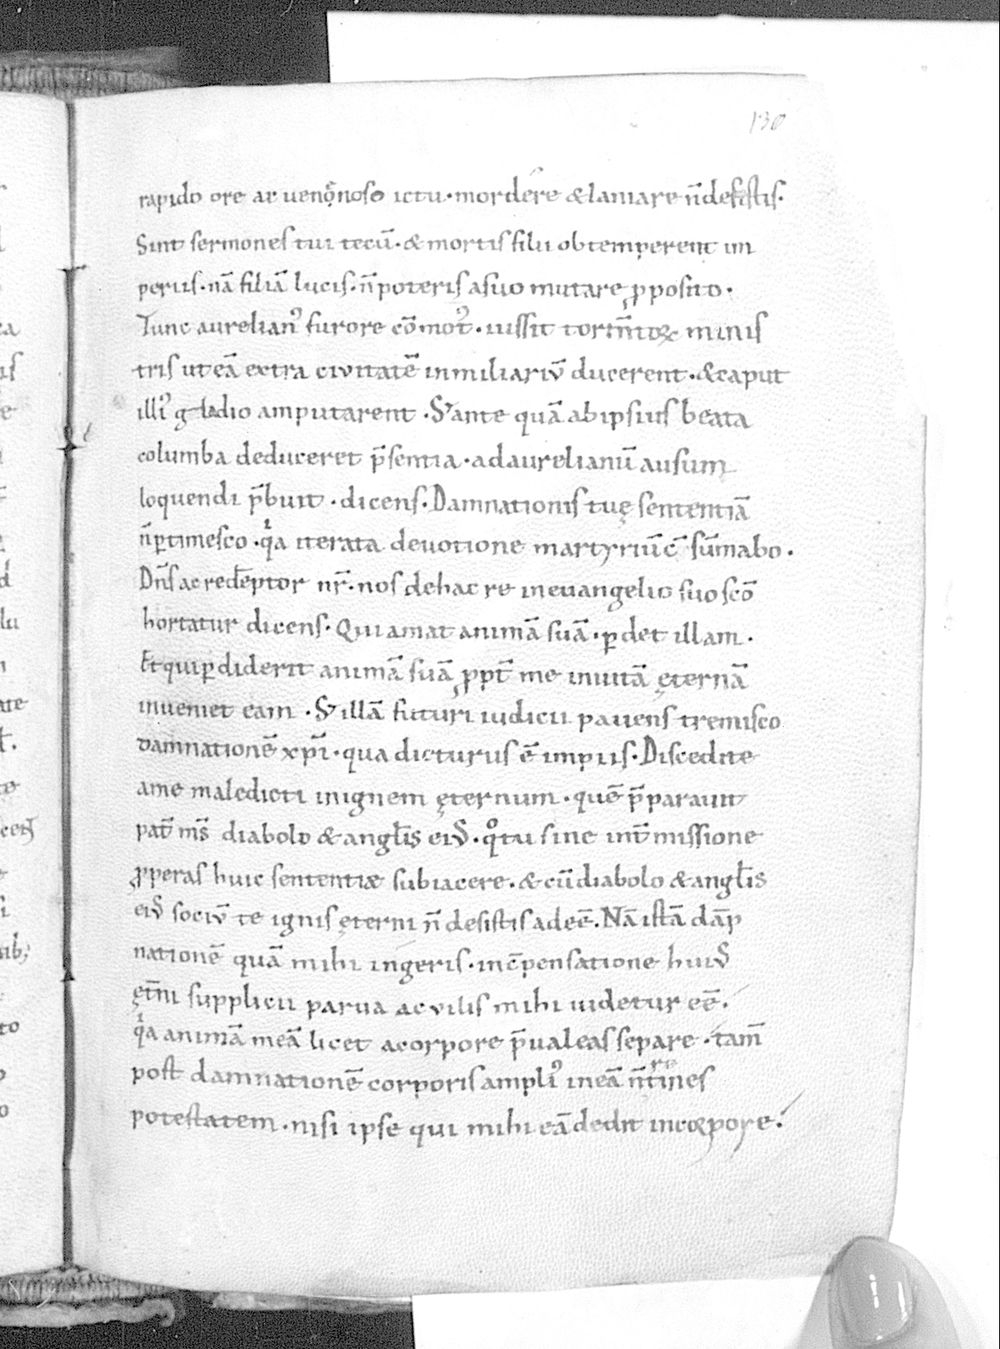 130
rapido ore ac uenenoso ictu · mordere & laniare n̄ desistis ·
Sint sermones tui tecū · & mortis filii obtemperent im
periis · nā filiā lucis · n̄ poteris a suo mutare p̱posito ·
Tunc aurelianꝰ furore cōmotꝰ · iussit tortm̄toꝝ minis
tris ut eā extra civitatē in miliariū ducerent · & caput
illiꝰ gladio amputarent · S; ante quā ab ipsius beata
columba deduceret p̄sentia · ad aurelianū ausum
loquendi p̄buit · dicens · Damnationis tuę sententiā
n̄ ꝑtimesco · qͥa iterata devotione martyriū c̄sūmabo ·
Dn̄s ac redēptor nr̄ · nos de hac re in euangelio suo scō
hortatur dicens · Qui amat animā suā · ꝑdet illam ·
Et qui ꝑdiderit animā suā ꝓpt̄ me in uitā ęternā
inueniet eam · S; illā futuri iudicii pavens tremisco
damnationē xp̄i · qua dicturus ē impiis · Discedite
a me maledicti in ignem ęternum · quē p̄parauit
pat̄ ms̄ diabolo & angl̄is eiꝰ · qͦ tu sine int̄missione
ꝓperas huic sententiæ subiacere · & cū diabolo & angl̄is
eiꝰ sociū te ignis ęterni n̄ desistis adeē · Nā istā dāp
nationē quā mihi ingeris · in c̄pensatione huiꝰ
ęt̄ni supplicii parva ac vilis mihi uidetur eē ·
qͥa animā meā licet a corpore p̄ualeas separe · tam̄
post damnationē corporis ampliꝰ in eā n̄ tines
potestatem · nisi ipse qui mihi eā dedit in corpore ·